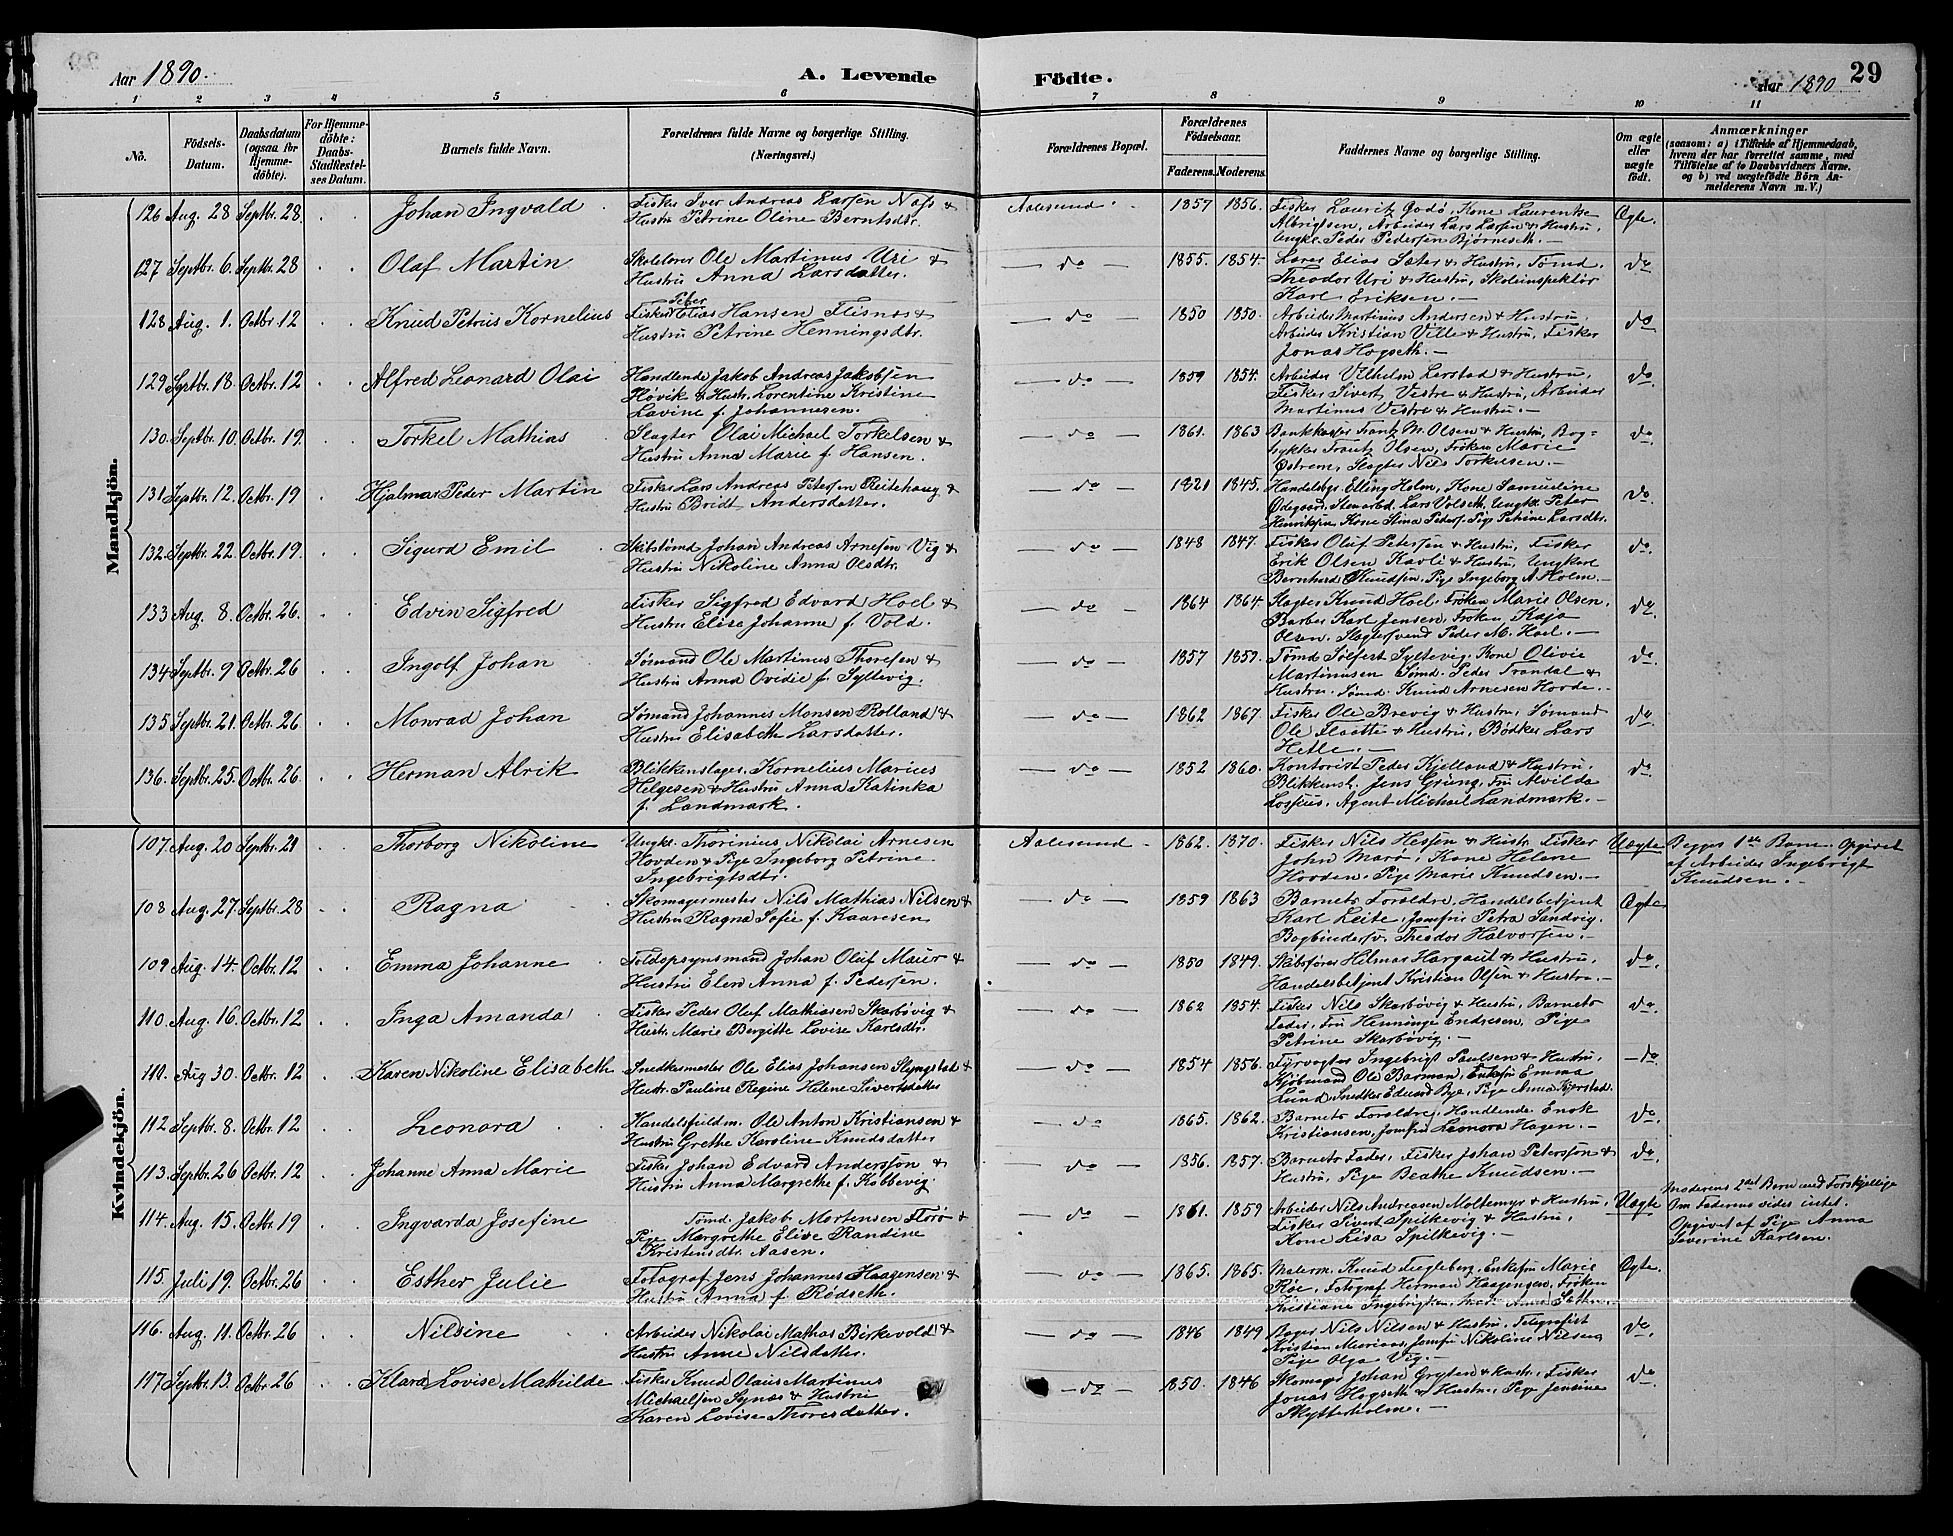 Aar 1890.
A. Levende Födte.
Aar 1890
29
1 2 3 4 5 6 7 8 9 10 11
No.
Födsels-Datum.
Daabsdatum (ogsaa for Hjemmedöbte).
For Hjemmedöbte: Daabs-Stadfestelses Datum.
Barnets fulde Navn.
Forældrenes fulde Navne og borgerlige Stilling. (Næringsvei.)
Forældrenes Bopæl.
Forældrenes Födselsaar.
Faderens. Moderens.
Faddernes Navne og borgerlige Stilling.
Om ægte eller uægte födt.
Anmærkninger
(saasom: a) i Tilfælde af Hjemmedaab, hvem der har forrettet samme, med Tilföielse af to Daabsvidners Navne, og b) ved uægtefödte Börn Anmelderens Navn m. V.)
Mandkjön.
126 Aug. 28 Septbr. 28. Johan Ingvald Fisker Iver Andreas Larsen Nafs & Hustru Petrine Oline Berntsdtr. Aalesund. 1857 1856. Fisker Lauritz Godö, Kone Laurentse Albrigtsen, Arbeider Lars Larsen & Hustru, Ungke. Peder Pedersen Bjørneseth. Ægte.
127 Septbr. 6. Septbr. 28 Olaf Martin Skolelærer Ole Martinus Uri & Hustru Anna Larsdatter. do 1855. 1854. Lærer Elias Sæter & Hustru, Tømd. Theodor Uri & Hustru, Skoleinspektør Karl Eriksen. do
128 Aug. 1. Octbr. 12 Knud Petrus Kornelius Fisker Peter Elias Hansen Flisnes & Hustru Petrine Henningsdtr. do 1850 1850. Arbeider Martinus Andersen & Hustru, Arbeider Kristian Ville & Hustru, Fisker Jonas Hogseth. do
129 Septbr. 18. Octbr. 12 Alfred Leonard Olai Handlende Jakob Andreas Jakobsen Hovik & Hustr. Lorentine Kristine Lavine f. Johannesen. do 1859 1854. Arbeider Vilhelm Lerstad & Hustru, Fisker Sivert Vestre & Hustru, Arbeider Martinus Vestre & Hustru. do
130 Septbr. 10. Octbr. 19. Torkel Mathias Slagter Olai Michael Torkelsen & Hustru Anna Marie f. Hansen. do 1861. 1863 Bankkasser Frantz M. Olsen & Hustru, Bogtykker Frantz Olsen, Frøken Marie Østrem, Slagter Nils Torkelsen. do
131 Septbr. 12. Octbr. 19 Hjalmar Peder Martin Fisker Lars Andreas Petersen Reitehaug & Hustru Bridt Andersdatter. do 1821 1845. Handelsbgr. Elling Holm, Kone Samueline Ødegaard, Stenarbd. Lars Volseth, Ungke. Peter Henriksen, Kone Stina Peders. Pige Petrine Larsdtr. do
132. Septbr. 22. Octbr. 19. Sigurd Emil Skibstømd. Johan Andreas Arnesen Vig & Hustru Nikoline Anna Olsdtr. do 1848 1847. Fisker Oluf Petersen & Hustru, Fisker Erik Olsen Kavli & Hustru, Ungkarl Bernhard Knudsen, Pige Ingeborg A. Holm. do
133 Aug. 8. Octbr. 26. Edvin Sigfred Fisker Sigfred Edvard Hoel & Hustru Elise Johanne f. Vold. do 1864 1864. Slagter Knud Hoel, Frøken Marie Olsen, Barber Karl Jensen, Frøken Kaja Olsen, Slagtersvend Peder M. Hoel. do
134 Septbr. 9 Octbr. 26 Ingolf Johan Sømand Ole Martinus Thoresen & Hustru Anna Ovidie f. Syltevig. do 1857 1859. Tømd Sølfest Syltevig, Kone Olivie Martinusen, Sømd. Peder Trandal & Hustru, Sømd. Knud Arnesen Horde. do
135 Septbr. 21. Octbr. 26 Monrad Johan Sømand Johannes Monsen Rolland & Hustru Elisabeth Larsdatter. do 1862 1867. Fisker Ole Brevig & Hustru, Sømand Ole Flaatte & Hustru, Bødker Lars Hetle. do
136. Septbr. 25. Octbr. 26 Herman Alrik Blikkenslager Kornelius Marius Helgesen & Hustru Anna Katinka f. Landmark. do 1852 1860. Kontorist Peder Kjelland & Hustru, Blikkensl. Jens Grüng, Fru Alvilda Lossius, Agent Michael Landmark. do
Kvindekjön.
107. Aug. 20 Septbr. 21 Thorborg Nikoline Ungk. Thorinius Nikolai Arnesen Hovden & Pige Ingeborg Petrine Ingebrigtsdtr. Aalesund 1862. 1870. Fisker Nils Hessen & Hustr. Fisker John Marø, Kone Helene Hovden, Pige Marie Knudsen. Uægte Begges 1ste Barn. Opgivet af Arbeider Ingebrigt Knudsen.
108 Aug. 27. Septbr. 28 Ragna Skomagermester Nils Mathias Nilsen & Hustru Ragna Sofie f. Kaaresen do 1859 1863 Barnets Forældre, Handelsbetjent Karl Leite, Jomfru Petra Sandvig, Bogbindersv. Theodor Halvorsen. Ægte
109 Aug. 14. Octbr. 12 Emma Johanne Toldopsynsmand Johan Oluf Maur & Hustru Elen Anna f. Pedersen. do 1850 1849. Skibsfører Hilmar Hargaut & Hustru, Handelsbetjent Kristian Olsen & Hustru. do
110. Aug. 16. Octbr. 12 Inga Amanda Fisker Peder Oluf Mathiasen Skarbøvig & Hustr. Marie Bergitte Lovise Karlsdtr. do 1862 1854. Fisker Nils Skarbøvig & Hustru, Barnets Fader, Fru Henninge Endresen, Pige Petrine Skarbøvig. do
111. Aug 30. Octbr. 12 Karen Nikoline Elisabeth Snedkermester Ole Elias Johansen Slyngstad & Hustr. Pauline Regine Helene Sivertsdatter do 1854 1856. Fyrvogter Ingebrigt Paulsen & Hustru, Kjøbmand Ole Barman, Enkefru Emma Lund, Snedker Edvard Bye, Pige Anna Kjerstad. do
112 Septbr. 8. Octbr. 12 Leonora Handelsfuldm. Ole Anton Kristiansen & Hustru Grethe Karoline Knudsdatter do 1865. 1862. Barnets Forældre, Handlende Enok Kristiansen, Jomfru Leonora Hagen. do
113. Septbr. 26 Octbr. 12 Johanne Anna Marie Fisker Johan Edvard Anderssøn & Hustru Anna Margrethe f. Kobbevig. do 1856. 1857. Barnets Fader, Fisker Johan Peterssøn & Hustru, Pige Beathe Knudsen. do
114. Aug. 15. Octbr. 19 Ingvarda Josefine Tømd. Jakob Mortensen Florø & Pige Margrethe Elise Randine Kristensdtr. Aasen. do 1861. 1859 Arbeider Nils Andreasen Moltemyr & Hustru, Fisker Sivert Spilkevig & Hustru, Kone Lisa Spilkevig. Uægte Moderens 2det Barn med Forskjellige Om Faderens vides intet. Opgivet af Pige Anna Severine Karlsen.
115. Juli 19. Octbr. 26 Esther Julie Fotograf Jens Johannes Haagensen & Hustru Anna f. Rødseth. do 1865. 1865. Malerm. Knud Fiegleberg, Enkefru Marie Röe, Fotograf Herman Haagensen, Frøken Kristiane Ingebrigtsen, Anna Sæther. Ægte.
116. Aug. 11. Octbr. 26 Nilsine Arbeider Nikolai Mathas Birkevold & Hustru Anne Nilsdatter. do 1846 1849 Bager Nils Nilsen & Hustru, Telegrafist Kristian Muriaas, Jomfru Nikoline Nilsen, Pige Olga Vig. do
117 Septbr. 13. Octbr. 26 Klara Lovise Mathilde Fisker Knud Olaus Martinus Michaelsen Synes & Hustru Karen Lovise Thoresdatter. do 1850. 1846 Skomager Johan Gryten & Hustr. Fisker Jonas Hogseth & Hustru, Pige Jensine Skytterholme. do